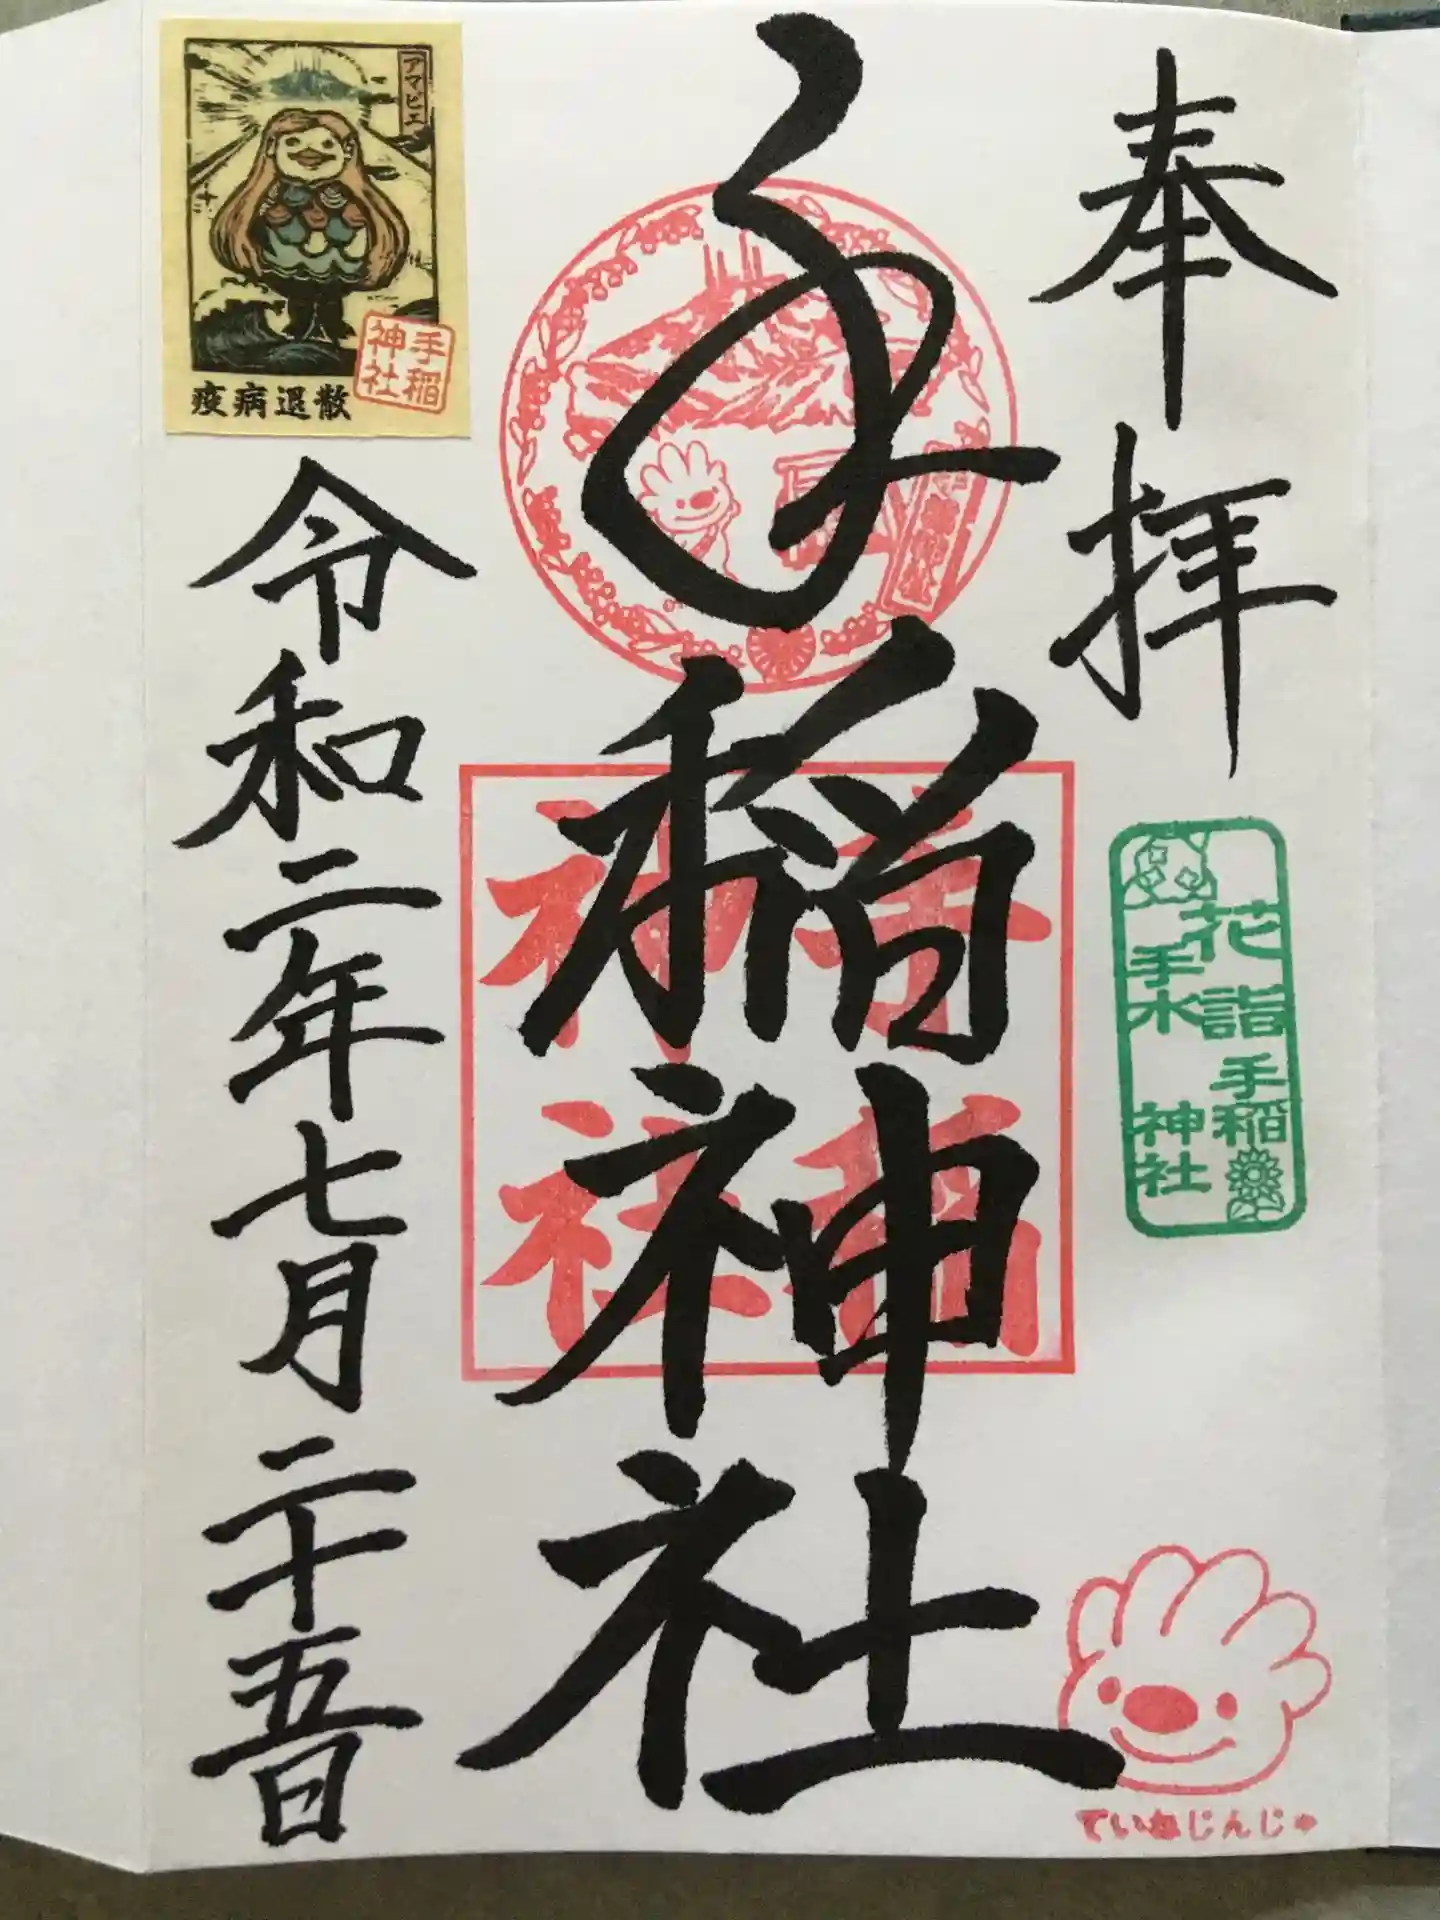 奉拝
花詣
手水
手稲
神社
ていねじんじゃ
手稲神社
手稲
神社
アマビエ
手稲
神社
疫病退散
令和二年七月二十五日